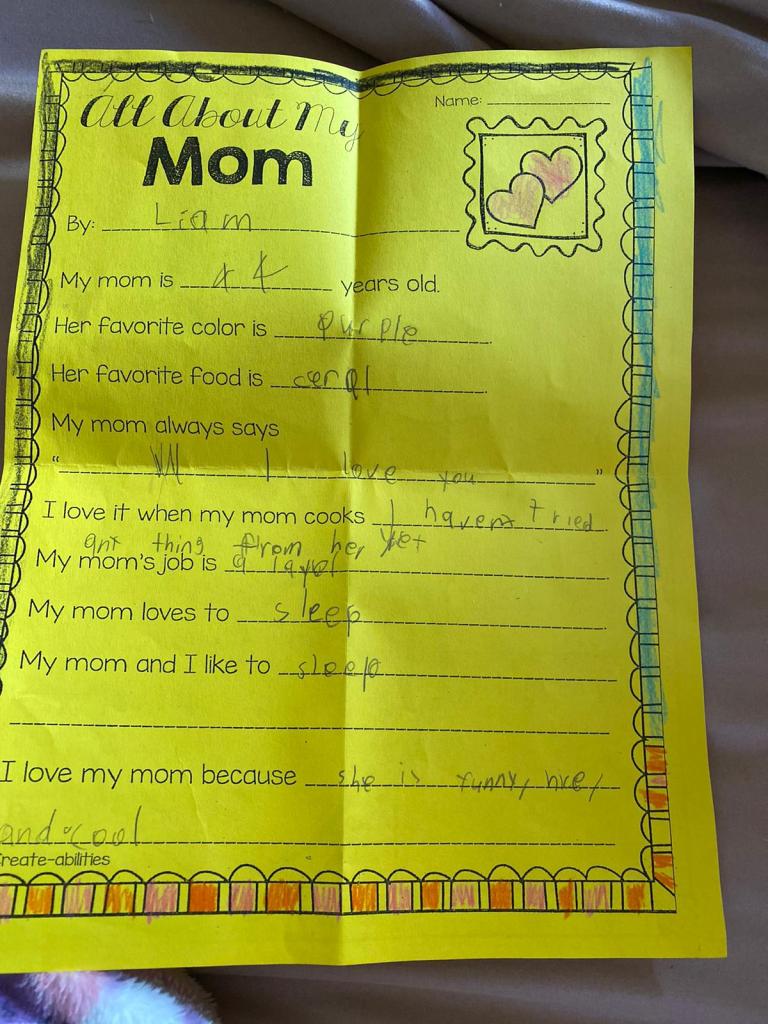 All About My
Name:
Mom
By: Liam
My mom is 44 years old.
Her favorite color is purple.
Her favorite food is cerql.
My mom always says
" I love you "
I love it when my mom cooks I havent tried
ant thing from her yet
My mom's job is a layer.
My mom loves to sleep.
My mom and I like to sleep
I love my mom because she is funny, nice,
and cool
Create-abilities